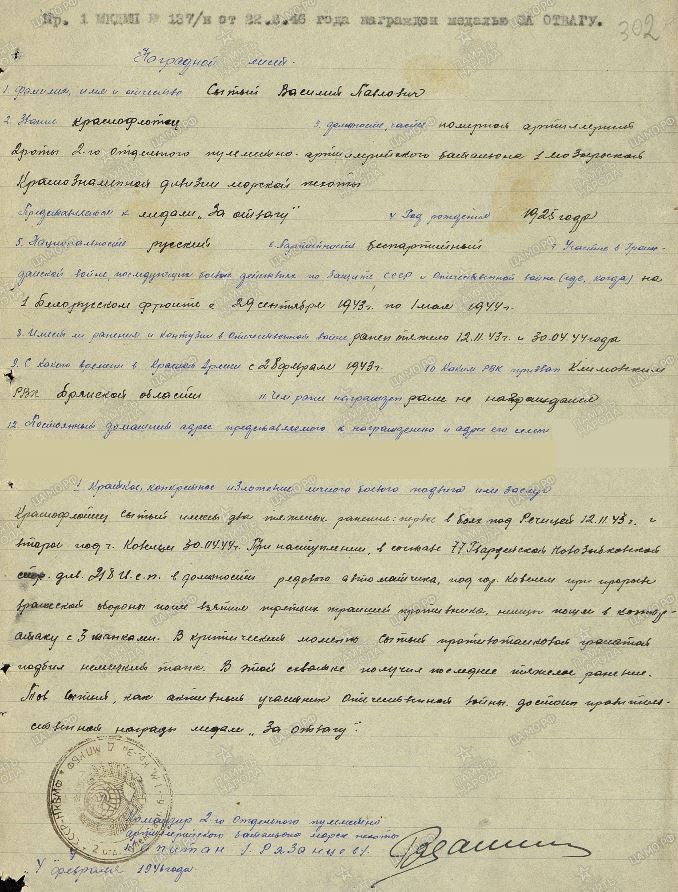 Пр. 1 МКДМП № 137/н от 22.3.46 года награжден медалью ЗА ОТВАГУ.
302
Наградной лист.
1. Фамилия, имя и отчество Сытый Василий Павлович
2. Звание краснофлотец 3. должность, часть номерной артиллерист
2 роты 2-го отдельного пулеметно-артиллерийского батальона 1 Мозырской
Краснознаменной дивизии морской пехоты
Представляется к медали „За отвагу" 4 Год рождения 1925 года
5. Национальность русский 6. Партийность беспартийный 7 Участие в Граж-
данской войне, последующих боевых действиях по защите СССР и Отечественной войне (где, когда) на
1 Белорусском фронте с 29 сентября 1943 г. по 1 мая 1944 г.
8. Имеет ли ранения и контузии в Отечественной войне ранен тяжело 12.11.43 г. и 30.04.44 года
9. С какого времени в Красной Армии с 28 февраля 1943 г. 10 Каким РВК призван Климовским
РВК Брянской области 11. Чем ранее награжден ранее не награждался
12 Постоянный домашний адрес представляемого к награждению и адрес его семьи
1 Краткое, конкретное изложение личного боевого подвига или заслуг
Краснофлотец Сытый имеет два тяжелых ранения: первое в боях под Речицей 12.11.43 г. и
второе под г. Ковелем 30.04.44 г. При наступлении, в составе 77 Гвардейской Новозыбковской
див. 218 в должности рядового автоматчика, под гор. Ковелем при прорыве
вражеской обороны после взятия третьих траншей противника, немцы пошли в контр-
атаку с 3 танками. В критический момент Сытый противотанковой гранатой
подбил немецкий танк. В этой схватке получил последнее тяжелое ранение.
Тов Сытый, как активный участник Отечественной войны достоин правитель-
ственной награды медали „За отвагу".
СССР-НКВМФ
Командир 2-го Отдельного пулеметно
артиллерийского батальона морск пехоты
Капитан (Рязанцев).
„4" февраля 1946 года